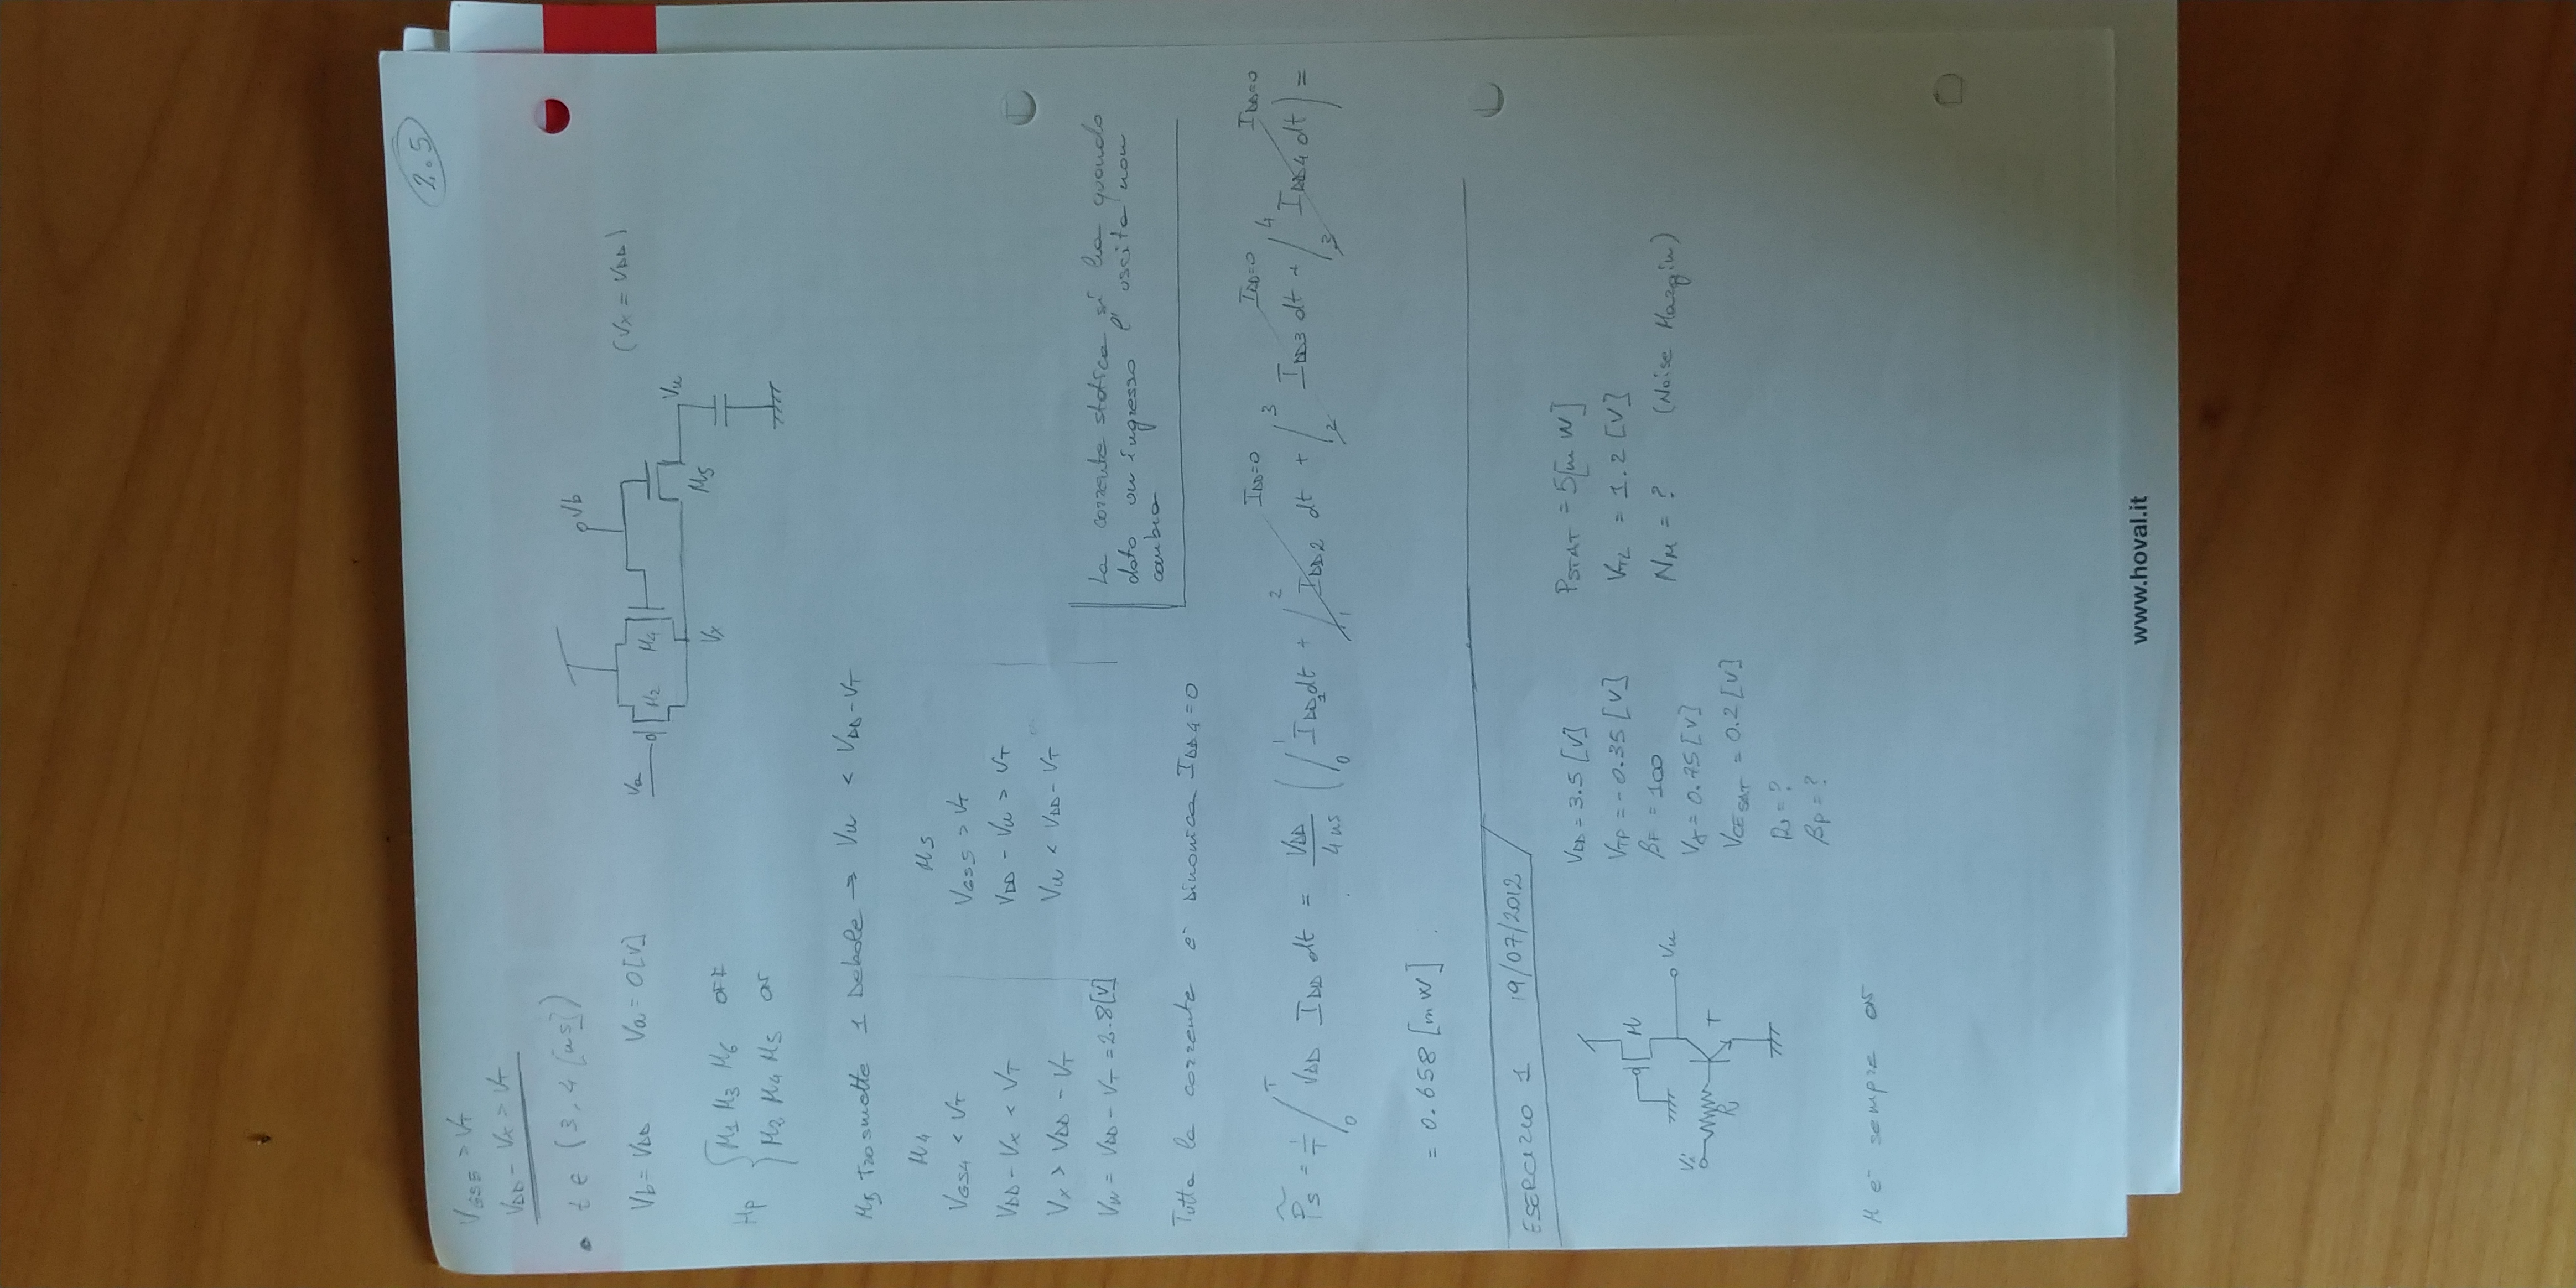 2.5
VGS5 > VT
VDD - VX > VT
• t ∈ (3, 4 [ns])
Vb = VDD Va = 0 [V]
Va
M2
M4
Vb
Vx
M5
Vu
(VX = VDD)
Hp { M1 M3 M6 OFF
M2 M4 M5 ON
M5 Trasmette 1 Debole → Vu < VDD - VT
M4
VGS4 < VT
VDD - VX < VT
VX > VDD - VT
Vu = VDD - VT = 2.8 [V]
M5
VGS5 > VT
VDD - Vu > VT
Vu < VDD - VT
La corrente statica si ha quando
dato un ingresso l'uscita non
cambia
Tutta la corrente è Dinamica IDD4 = 0
IDD=0 IDD=0 IDD=0
P̃S = 1/T ∫0^T VDD IDD dt = VDD/4ns ( ∫0^1 IDD1 dt + ∫1^2 IDD2 dt + ∫2^3 IDD3 dt + ∫3^4 IDD4 dt ) =
= 0.658 [mW].
ESERCIZIO 1 19/07/2012
M
Vu
Vi
R
T
VDD = 3.5 [V]
VTP = -0.35 [V]
βF = 100
Vγ = 0.75 [V]
VCE SAT = 0.2 [V]
R = ?
βP = ?
PSTAT = 5 [mW]
VTL = 1.2 [V]
NM = ? (Noise Margin)
M è sempre ON
www.hoval.it